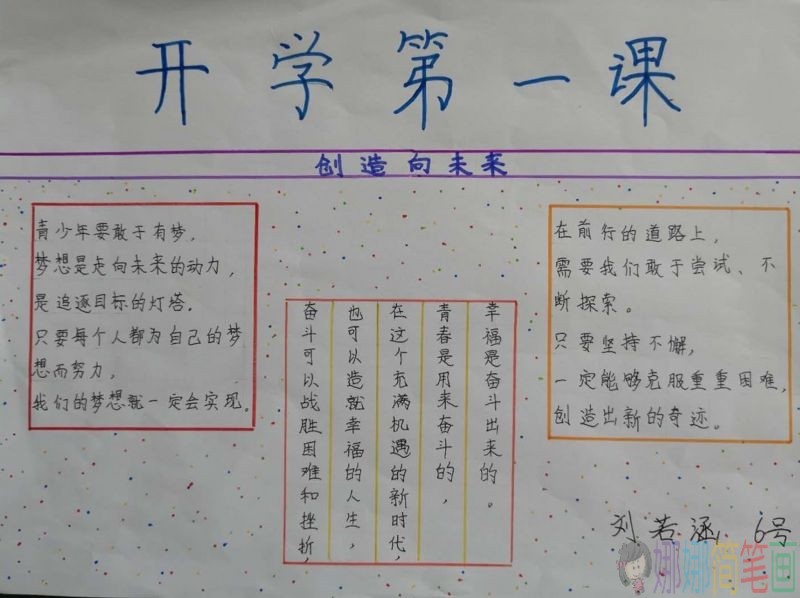 开学第一课
创造向未来
青少年要敢于有梦，
梦想是走向未来的动力，
是追逐目标的灯塔。
只要每个人都为自己的梦
想而努力，
我们的梦想就一定会实现。
奋斗可以战胜困难和挫折，
也可以造就幸福的人生，
在这个充满机遇的新时代，
青春是用来奋斗的，
幸福是奋斗出来的。
在前行的道路上，
需要我们敢于尝试、不
断探索。
只要坚持不懈，
一定能够克服重重困难，
创造出新的奇迹。
刘若涵，6号
娜娜简笔画